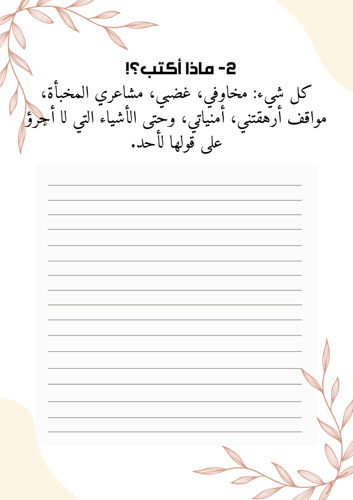 2- ماذا أكتب؟!
كل شيء: مخاوفي، غضبي، مشاعري المخبأة،
مواقف أرهقتني، أمنياتي، وحتى الأشياء التي لا أجرؤ
على قولها لأحد.